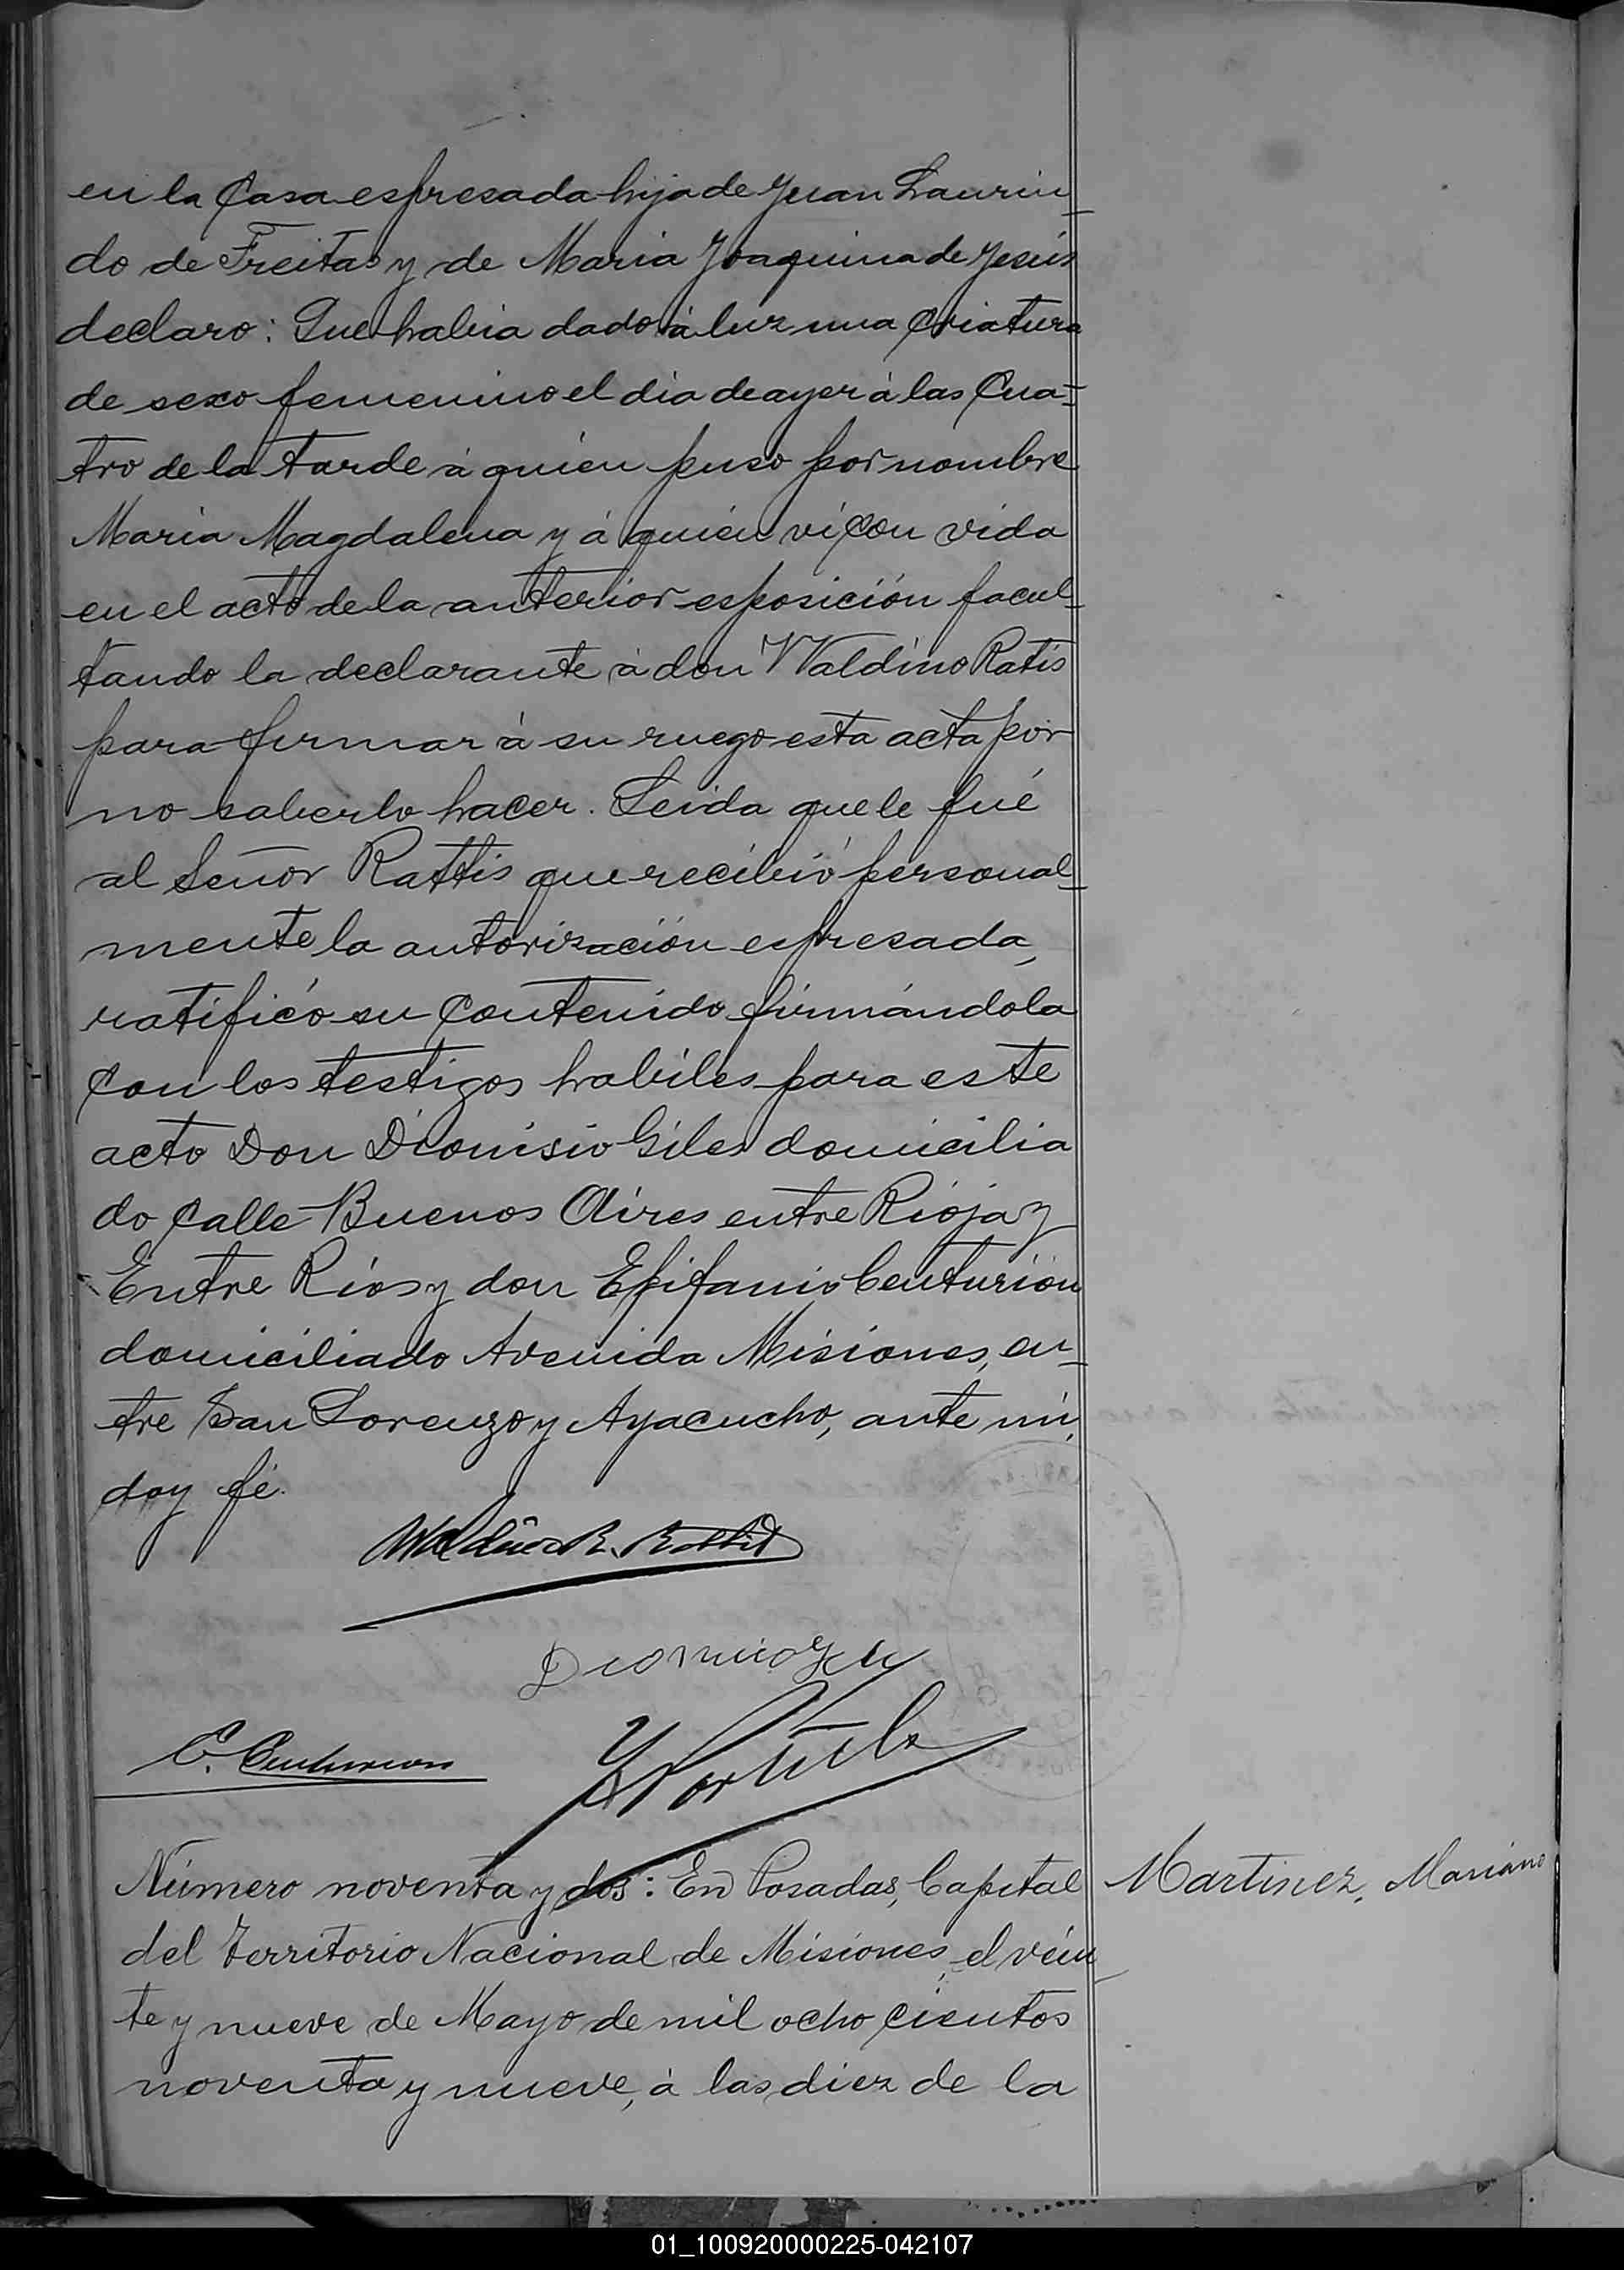 en la Casa espresada hija de Juan Laurin-
do de Freitas y de Maria Joaquina de Jesús
declaro: Que habia dado á luz una Criatura
de sexo femenino el dia de ayer á las Cua-
tro de la tarde á quien puso por nombre
Maria Magdalena y á quién ví con vida
en el acto de la anterior esposición facul-
tando la declarante á don Waldino Ratis
para firmar á su ruego esta acta por
no saberlo hacer. Leida que le fué
al Señor Rattis que recibió personal-
mente la autorización espresada,
ratificó su Contenido firmándola
Con los testigos habiles para este
acto Don Dionisio Giles domicilia
do Calle Buenos Aires entre Rioja y
Entre Rios y don Epifanio Centurión
domiciliado Avenida Misiones, en-
tre San Lorenzo y Ayacucho, ante mi,
doy fé.
Waldino R. Rattis
E. Centurion
Número noventa y dos: En Posadas, Capital
Martinez, Mariano
del Territorio Nacional de Misiones, el vein-
te y nueve de Mayo de mil ocho cientos
noventa y nueve, á las diez de la
01_100920000225-042107